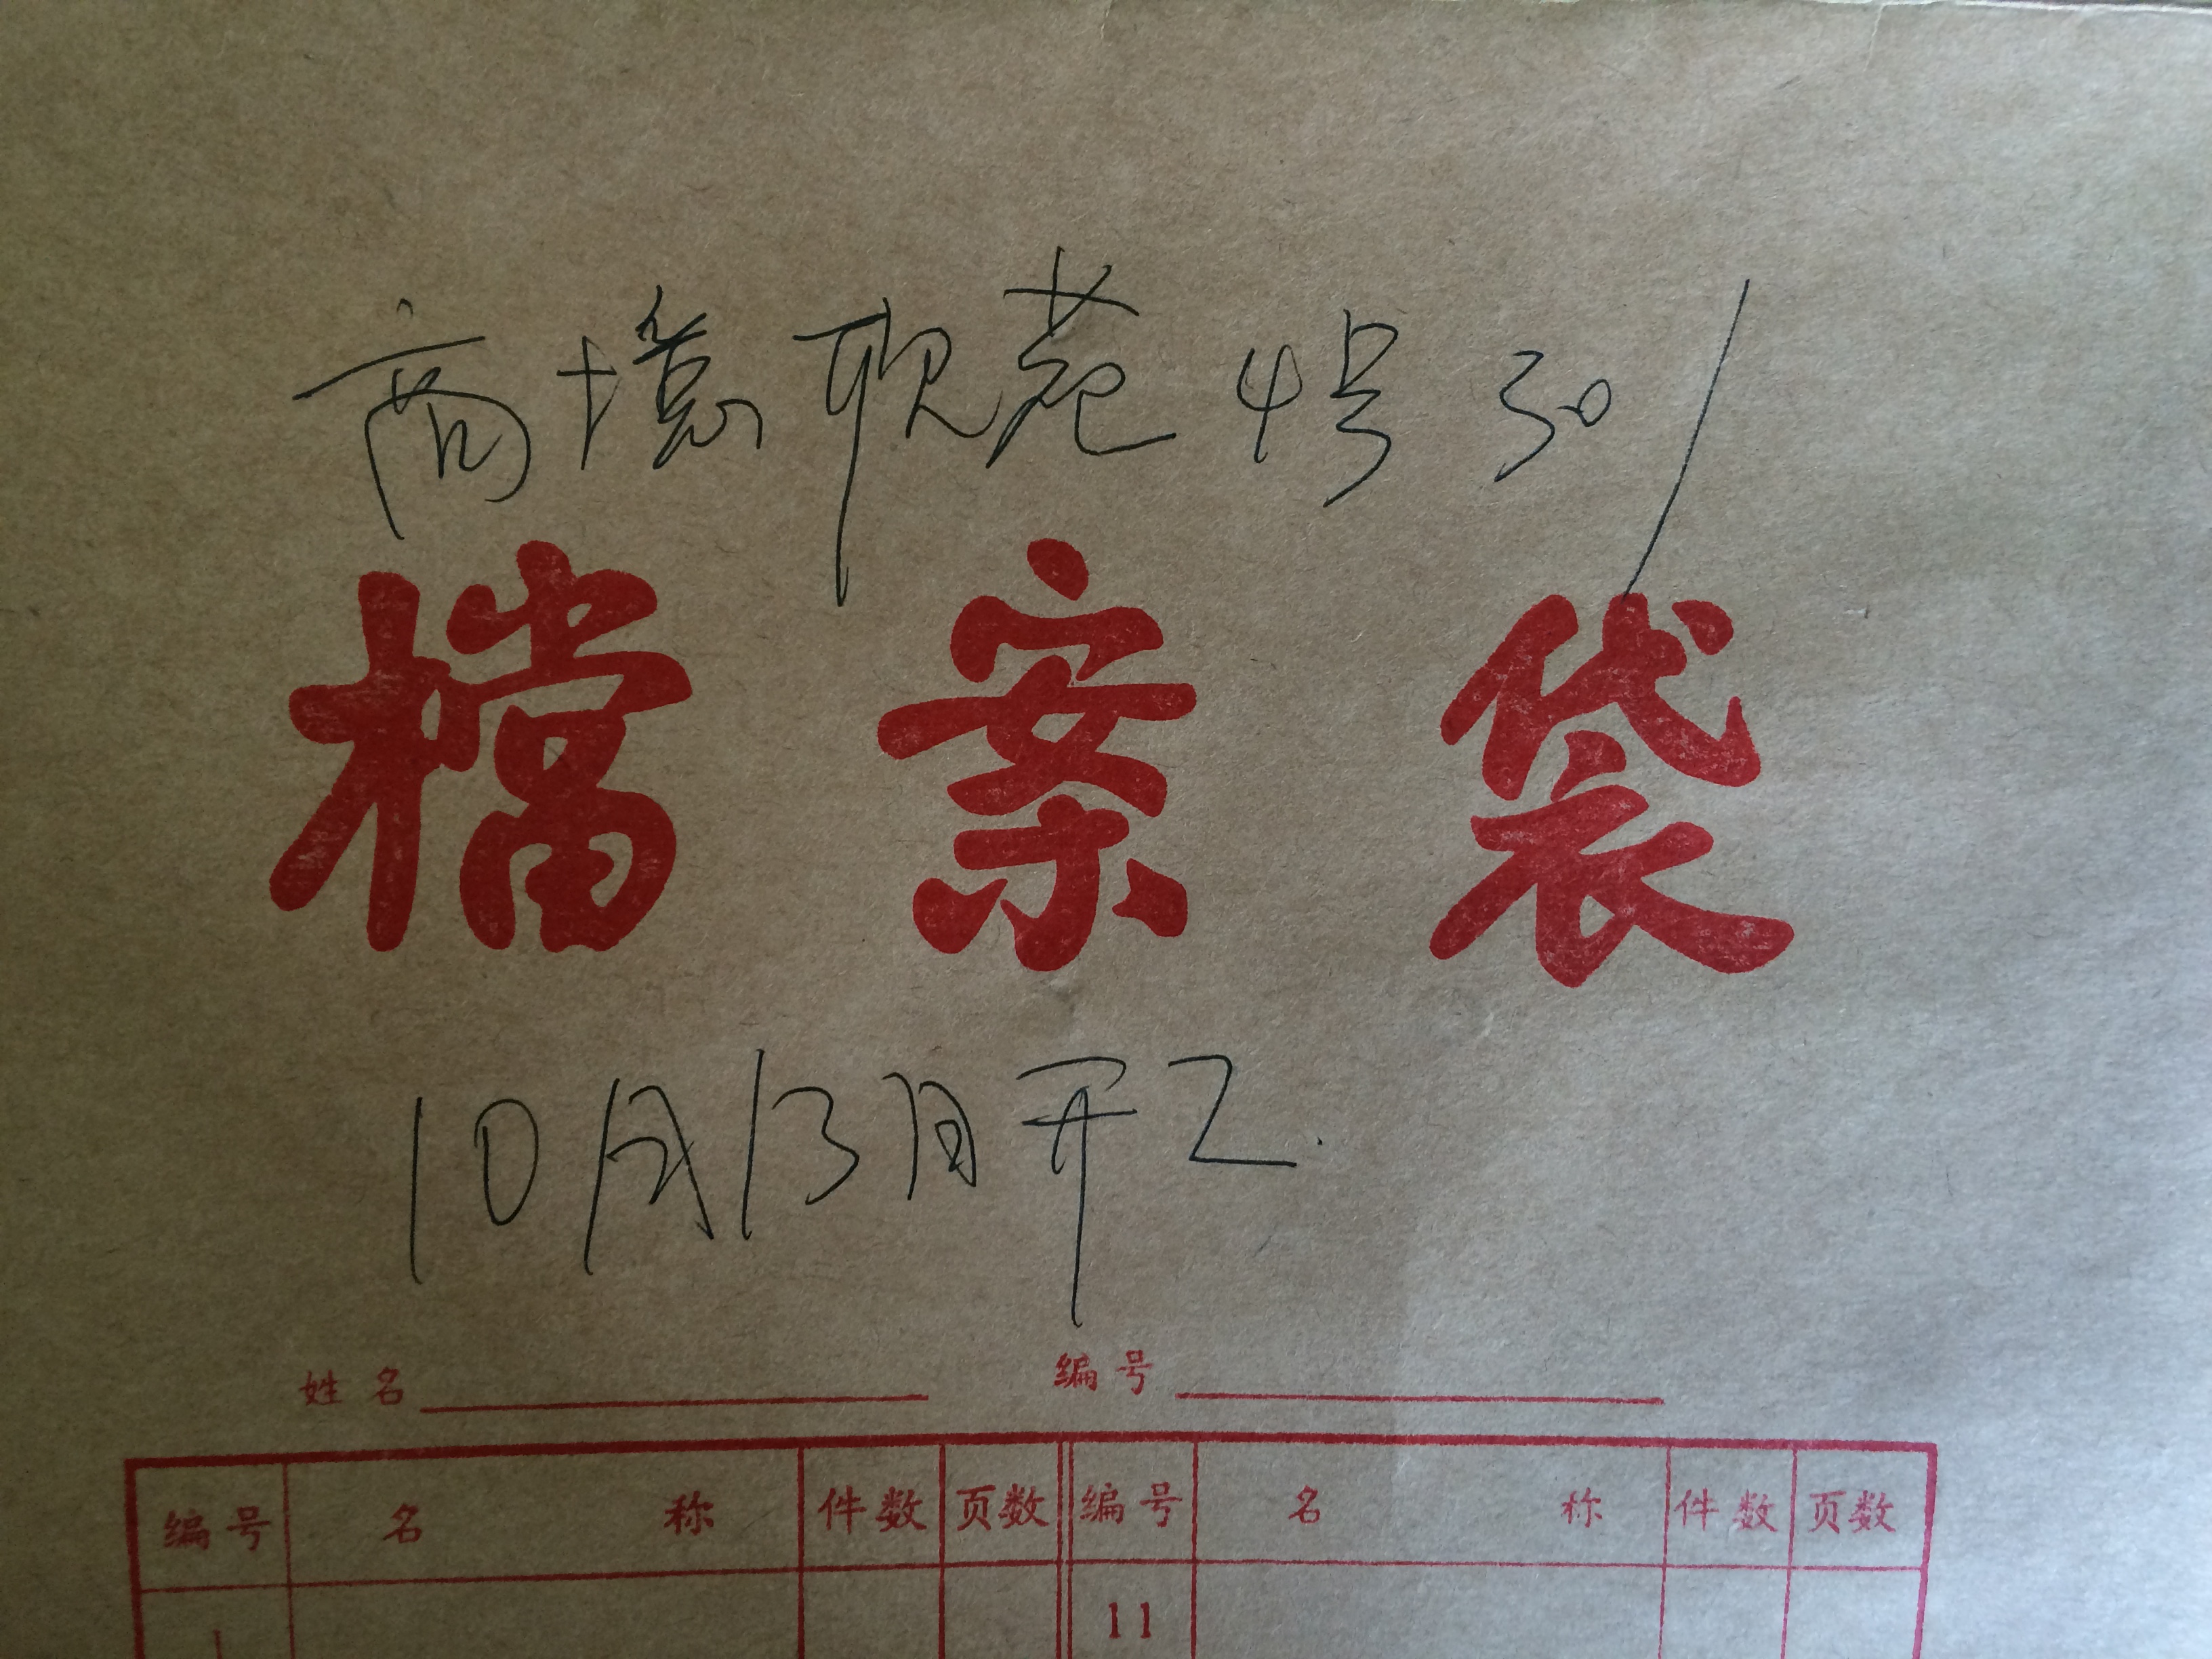 商憶观苑4号301
檔案袋
10月13日开工.
姓名 编号
编号 名称 件数 页数 编号 名称 件数 页数
1 11